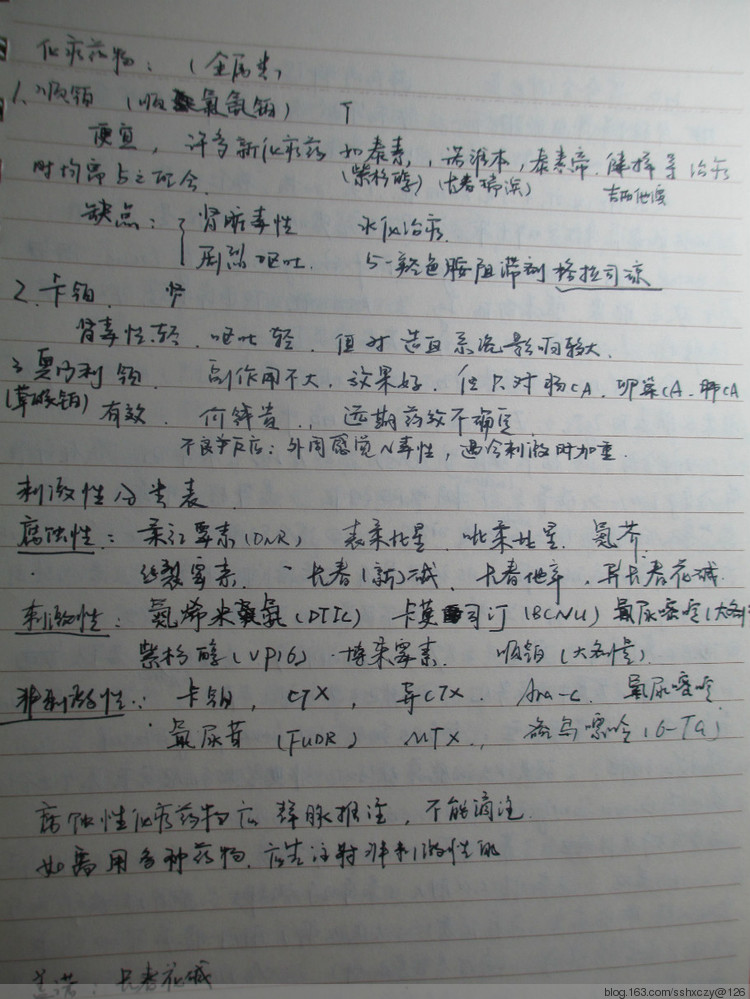 化疗药物：（金属类）
1、顺铂（顺氯氨铂）
便宜，许多新化疗药如泰素，诺维本，泰素帝、健择等治疗
（紫杉醇）（长春瑞滨） 吉西他滨
时均需与之配合
缺点： 肾脏毒性 水化治疗
剧烈呕吐. 5-羟色胺阻滞剂 格拉司琼
2、卡铂.
肾毒性轻. 呕吐轻. 但对造血系统影响较大.
3 奥沙利铂. 副作用不大. 效果好. 但只对肠CA. 卵巢CA. 肺CA
（草酸铂） 有效. 价钱贵., 远期药效不确定
不良反应：外周感觉N毒性，遇冷刺激时加重.
刺激性分类表
腐蚀性：柔红霉素（DNR） 表柔比星. 吡柔比星. 氮芥.
丝裂霉素. 长春（新）碱. 长春他辛. 异长春花碱.
刺激性：氮烯米（DTIC） 卡莫司汀（BCNU） 氟尿嘧啶（大剂
紫杉醇（VP16） 博来霉素. 顺铂（大剂量）.
非刺激性：卡铂， CTX， 异CTX. Ara-c. 氟尿嘧啶.
氟尿苷（FUDR） MTX., 嘌呤（6-TG）
腐蚀性化疗药物应静脉推注，不能滴注.
如需用多种药物. 应先注射非刺激性的
盖诺：长春花碱
blog.163.com/sshxczy@126